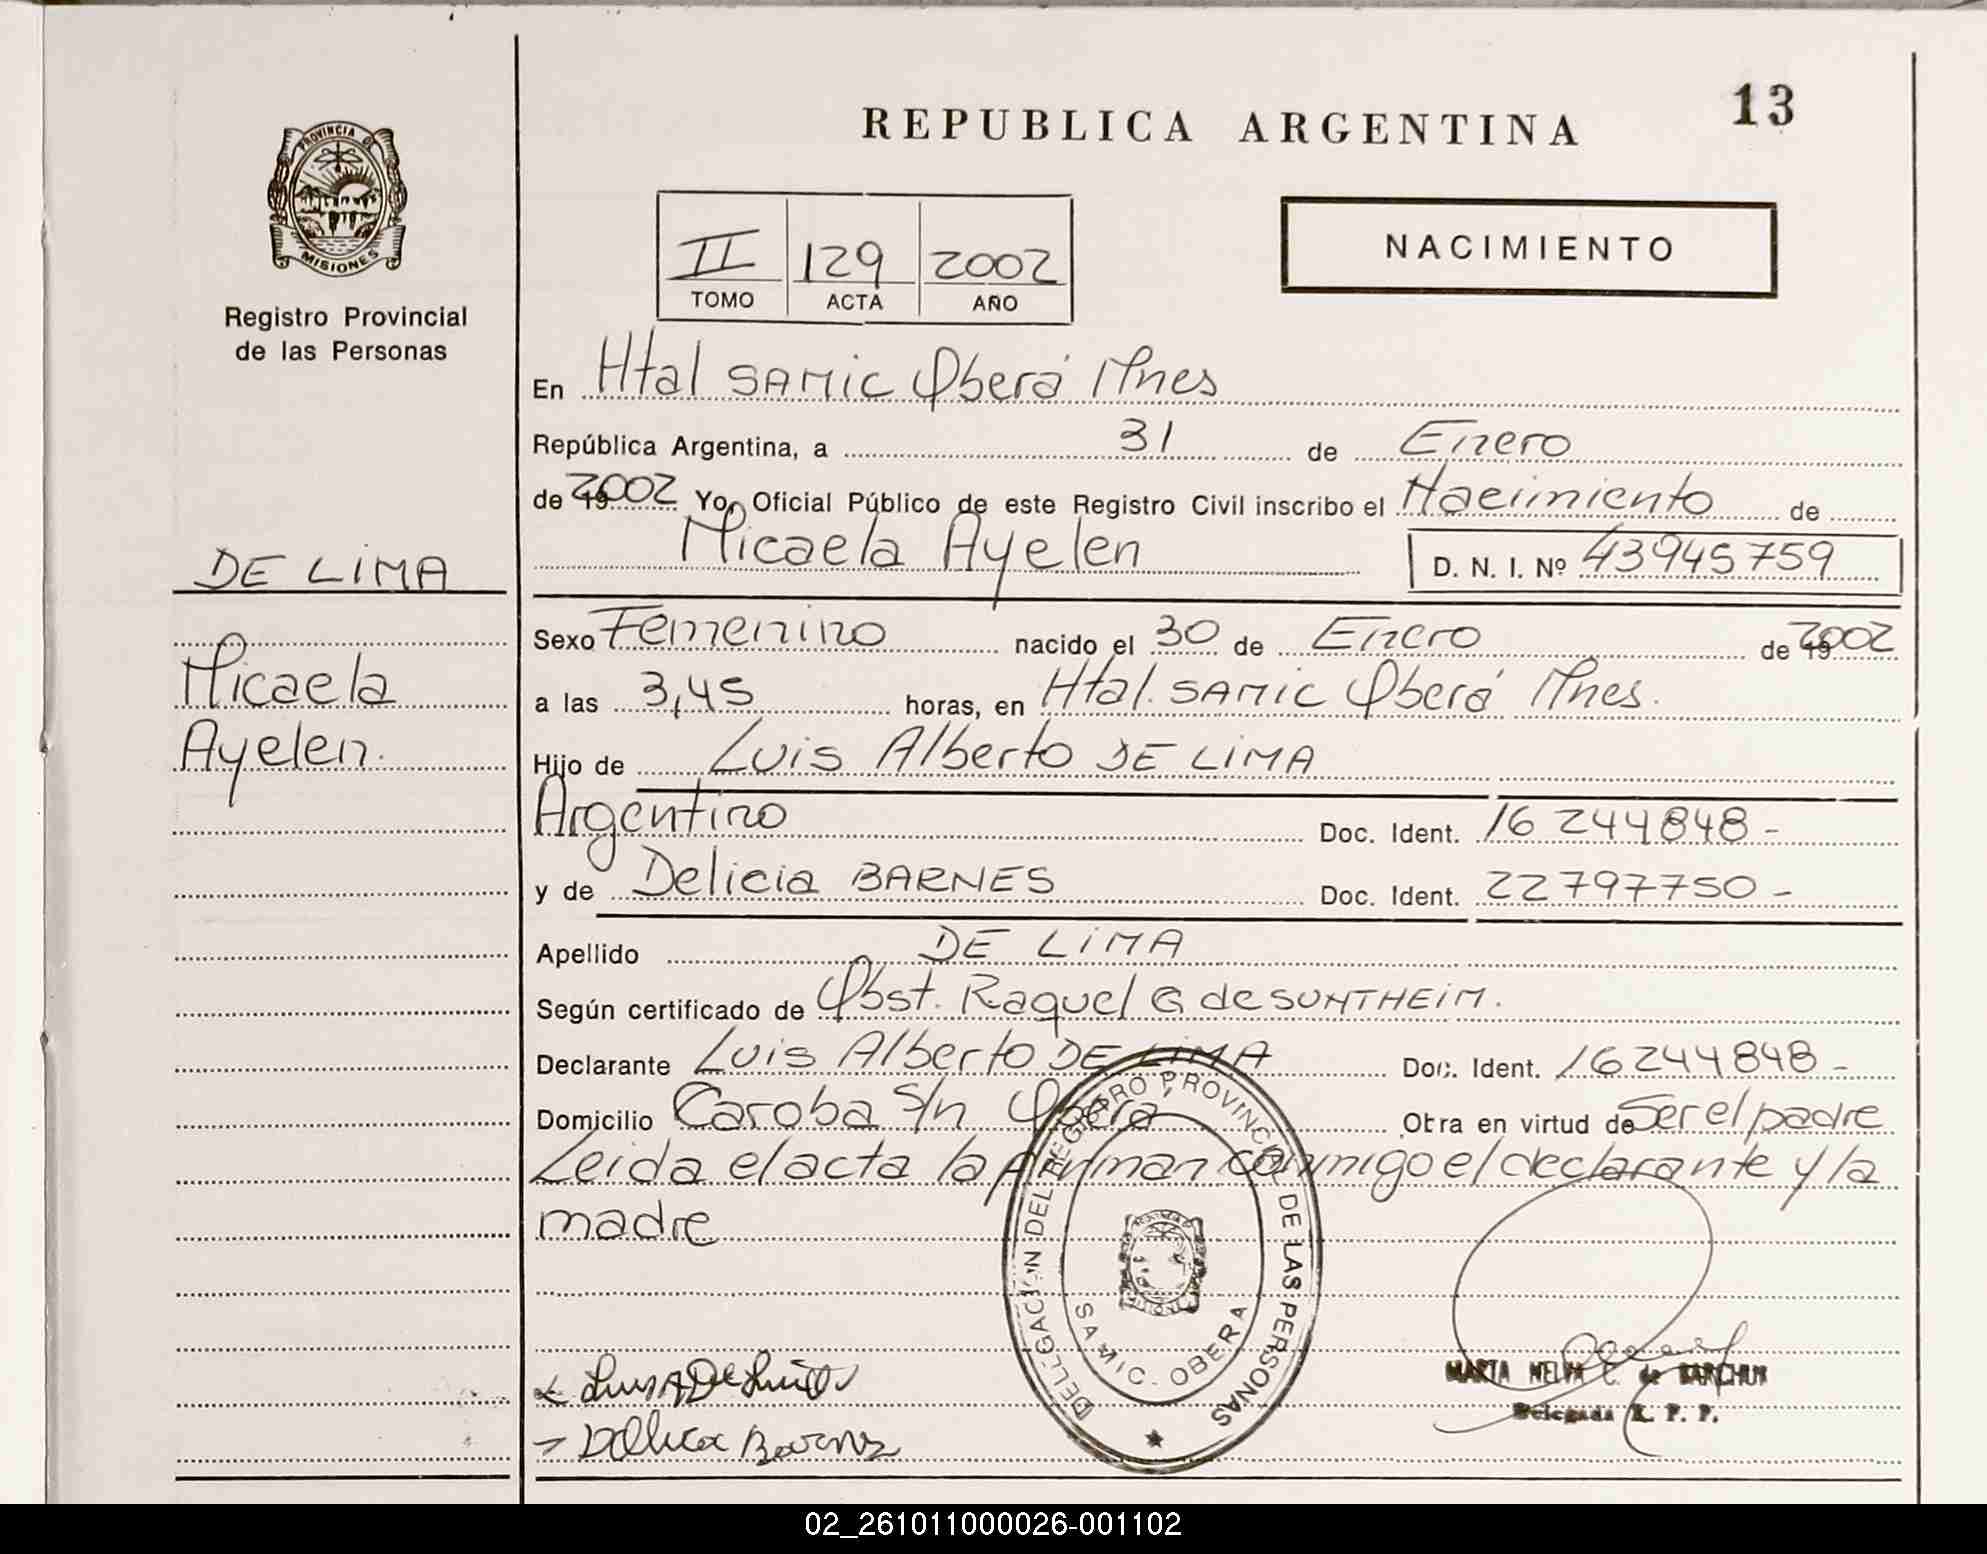 REPUBLICA ARGENTINA
13
PROVINCIA DE
MISIONES
Registro Provincial
de las Personas
II 129 2002
TOMO ACTA AÑO
NACIMIENTO
En Htal SAMIC Oberá Mnes
República Argentina, a 31 de Enero
de 19 2002 Yo, Oficial Público de este Registro Civil inscribo el Nacimiento de
Micaela Ayelen D. N. I. Nº 43945759
DE LIMA
Micaela
Ayelen.
Sexo Femenino nacido el 30 de Enero de 19 2002
a las 3,45 horas, en Htal. SAMIC Oberá Mnes.
Hijo de Luis Alberto DE LIMA
Argentino Doc. Ident. 16 244848-
y de Delicia BARNES Doc. Ident. 22797750-
Apellido DE LIMA
Según certificado de Obst. Raquel G de SUNTHEIM.
Declarante Luis Alberto DE LIMA Doc. Ident. 16244848-
Domicilio Caroba S/n Oberá Otra en virtud de Ser el padre
Leida el acta la firman conmigo el declarante y la
madre
DELEGACION DEL REGISTRO PROVINCIAL DE LAS PERSONAS
SAMIC. OBERA
Luis A De Lima
Delicia Barnes
MARTA NELVA C. de BARCHUK
Delegada R. P. P.
02_261011000026-001102